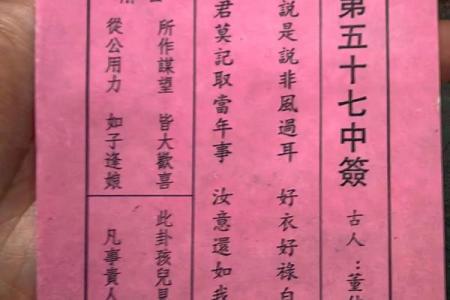 第五十七中簽 古人：董
說是說非風過耳 好衣好祿自
君莫記取當年事 汝意還如我
此卦孩兒見
凡事貴人
所作謀望 皆大歡喜
從公用力 如子逢娘